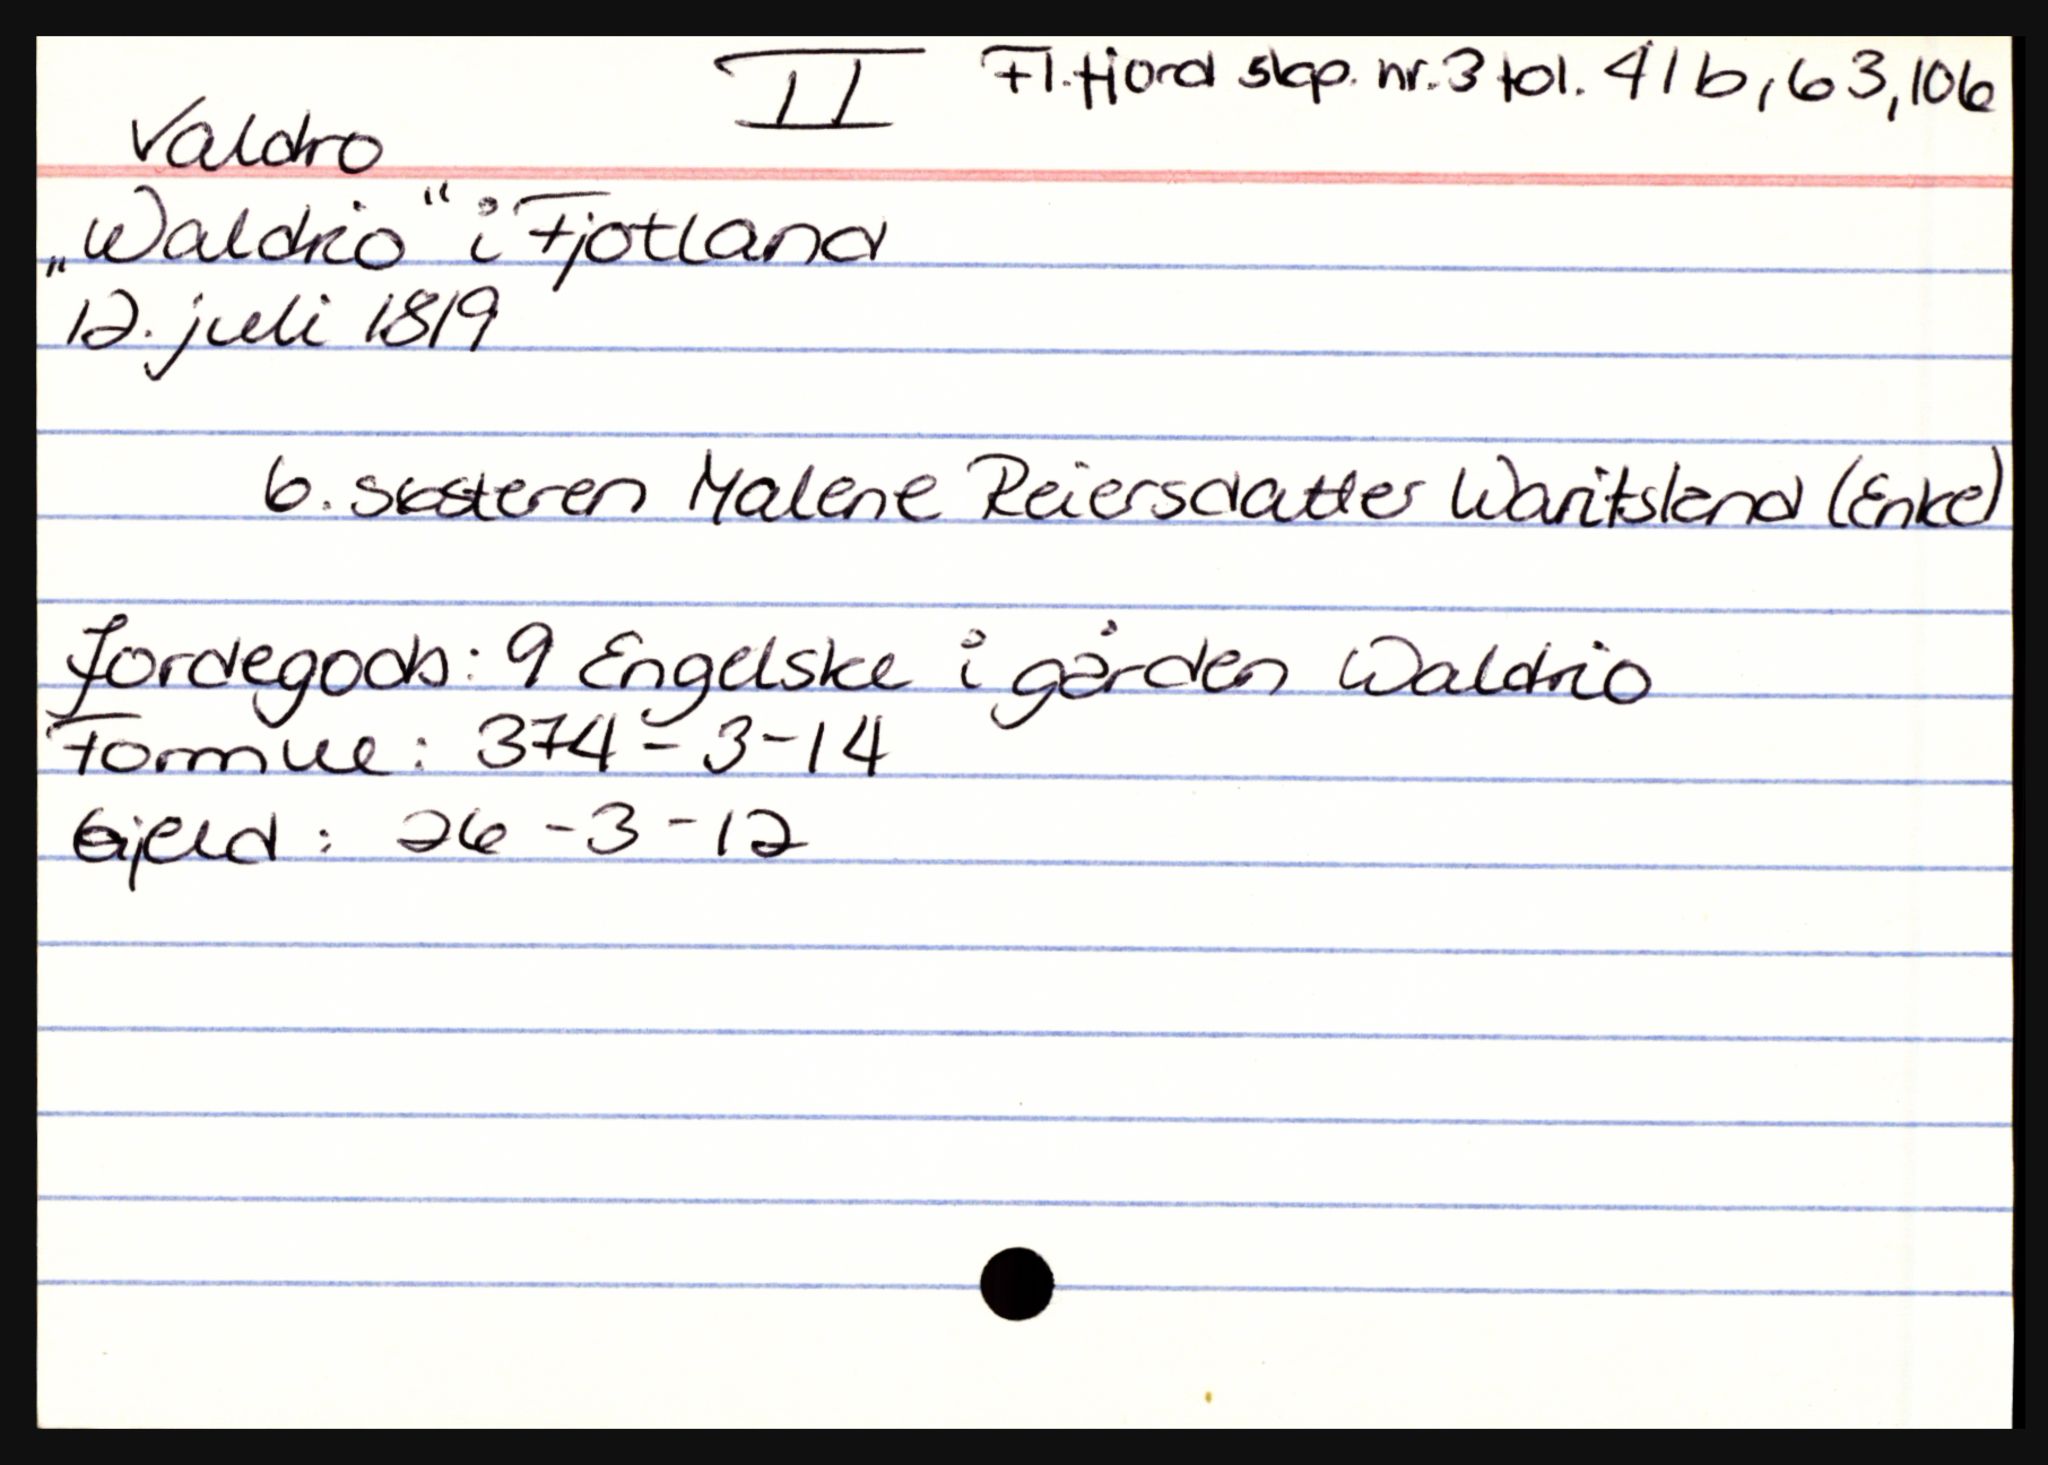 II Fl.fjord skp. nr. 3 fol. 41b, 63, 106
Valdro
„Waldrio“ i Fjotland
12. juli 1819
6. søsteren Malene Reiersdatter Waritsland (Enke)
Jordegods: 9 Engelske i gården Waldrio
Formue: 374-3-14
Gjeld: 26-3-12